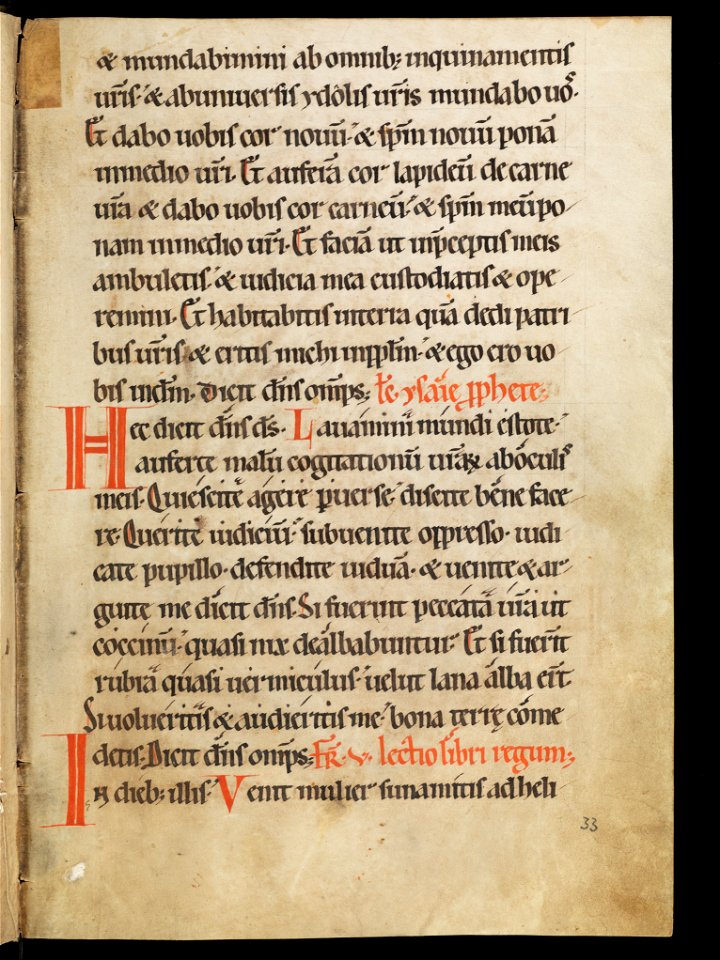 & mundabimini ab omnib; inquinamentis
ur̄is· & abuniuersis ydôlis ur̄is mundabo uos·
Et dabo uobis cor nouū· & sp̄m nouū ponā
inmedio ur̄i· Et auferā cor lapideū de carne
ur̄a & dabo uobis cor carneū· & sp̄m meū po-
nam inmedio ur̄i· Et faciā ut inp̄ceptis meis
ambuletis· & iudicia mea custodiatis & ope-
remini· Et habitabitis interra quā dedi patri-
bus ur̄is· & eritis michi inpp̄lm̄· & ego ero uo-
bis indm̄· dicit dn̄s om̄ps; łe· ysaie ꝓphete;
Hec dicit dn̄s ds̄· Lauamini mundi estote·
auferte malū cogitationū ur̄aꝝ aboculis
meis· Quiescite agere ꝑuerse· discite bene face-
re· Querite iudiciū· subuenite oppresso· iudi-
cate pupillo· defendite uiduā· & uenite & ar-
guite me dicit dn̄s· Si fuerint peccata ur̄a ut
coccinū· quasi nix dealbabuntur· Et si fuerīt
rubra quasi uermiculus· uelut lana alba er̄t·
Si uolueritis & audieritis me· bona terrę come-
detis· Dicit dn̄s om̄ps; Fr̄· v· lectio libri regum;
In dieb; illis· Venit mulier sunamitis ad heli-
33